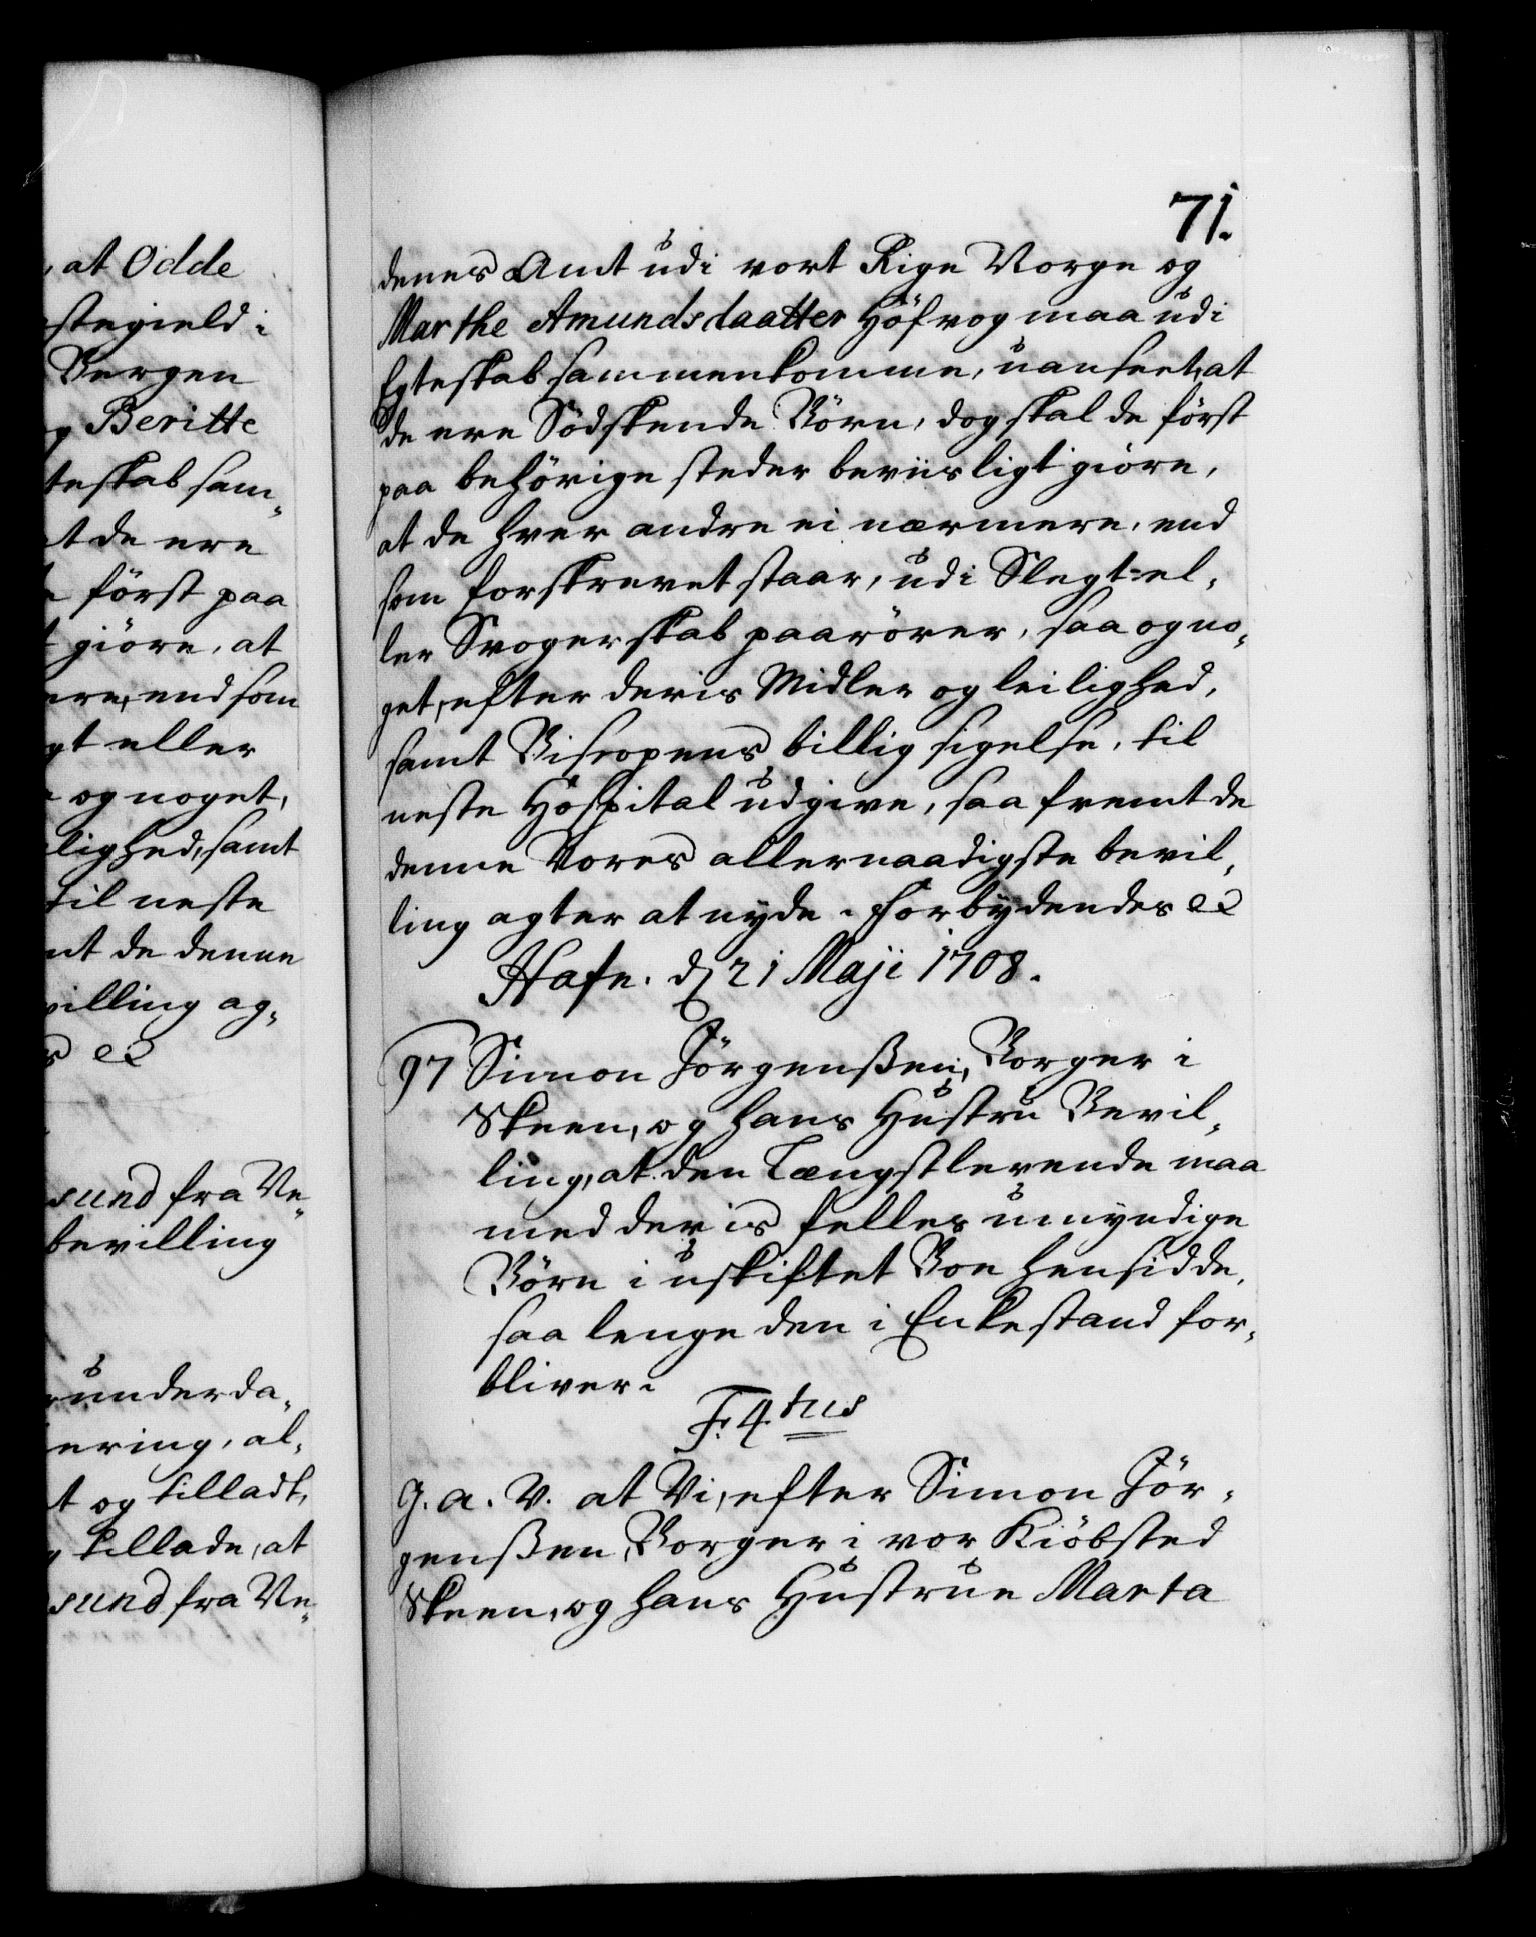 , at Odde
stegield i
Bergen
g Beritte
teskab sam„
t de ere
först paa
t giöre, at
ere, end som
gt eller
og noget,
lighed, samt
til neste
mt de denne
villing ag„
s &c
sund fra Ve„
bevilling
underda„
ering, al„
t og tilladt,
tillade, at
sund fra Ve„
71.
denes Amt udi vort Rige Norge og
Marthe Amundsdaatter Höfvog maa udi
Egteskab sammenkomme, uanseet, at
de ere Södskende Börn, dog skal de först
paa behörige steder beviisligt giöre,
at de hver andre ei nærmere, end
som forskrevet staar, udi Slegt-el„
ler Svogerskab paarörer, saa og no„
get, efter deris Midler og leilighed,
samt Biscopens billig sigelse, til
neste Hospital udgive, saa fremt de
denne Vores allernaadigste bevil„
ling agter at nyde. Forbydendes &c
Hafn. d 21 Maji 1708.
97 Simon Jörgenßen, Borger i
Skeen, og hans Hustru Bevil„
ling, at den Længstlevende maa
med deris felles umyndige
Börn i uskiftet Boe hensidde,
saa lenge den i Enkestand for„
bliver.
F. 4.tus
G. a. V. at Vi, efter Simon Jör„
genßen, Borger i vor Kiöbsted
Skeen, og hans Hustrue Marta